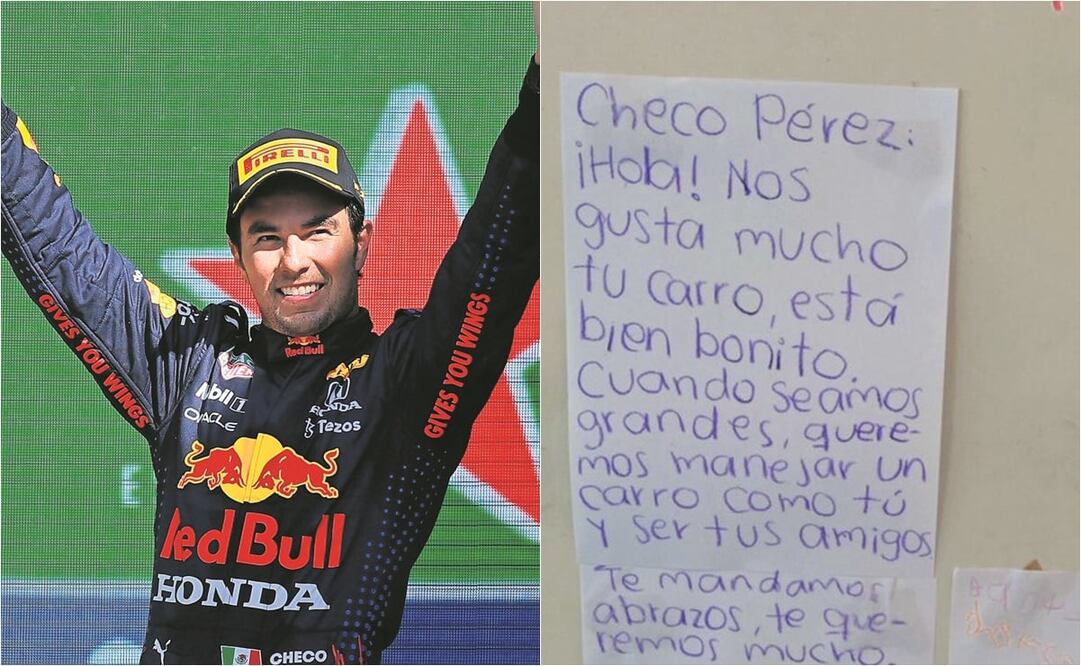 PIRELLI
GIVES YOU WINGS
GIVES YOU WINGS
Red Bull
Mobil 1
ORACLE
HONDA
Tezos
Red Bull
HONDA
CHECO
Checo Pérez:
¡Hola! Nos
gusta mucho
tu carro, está
bien bonito.
Cuando seamos
grandes, quere-
mos manejar un
carro como tú
y ser tus amigos.
Te mandamos
abrazos, te que-
remos mucho.